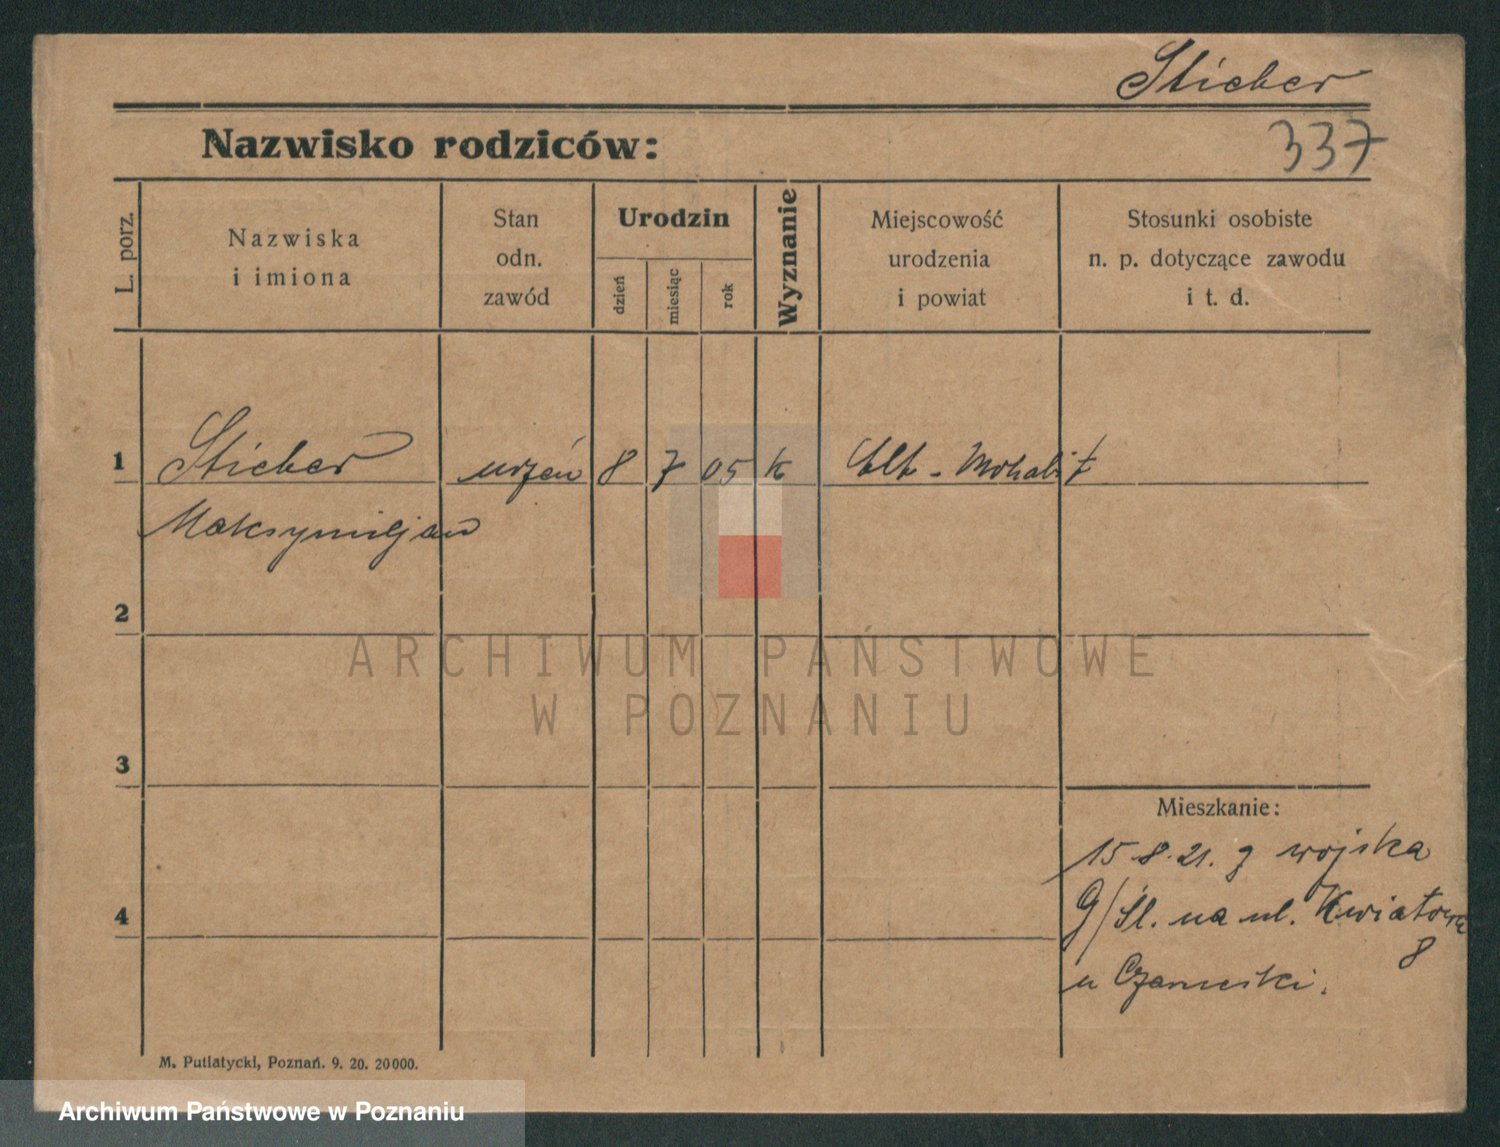 Stieber
Nazwisko rodziców:
337
L. porz.
Nazwiska
i imiona
Stan
odn.
zawód
Urodzin
dzień
miesiąc
rok
Wyznanie
Miejscowość
urodzenia
i powiat
Stosunki osobiste
n. p. dotyczące zawodu
i t. d.
1 Stieber 8 7 05 k
Maksymiljan
2
ARCHIWUM PAŃSTWOWE
W POZNANIU
3
Mieszkanie:
15.8.21. z wojska
4
G/Śl. na ul. Kwiatową
8
u
M. Putiatycki, Poznań. 9. 20. 20000.
Archiwum Państwowe w Poznaniu